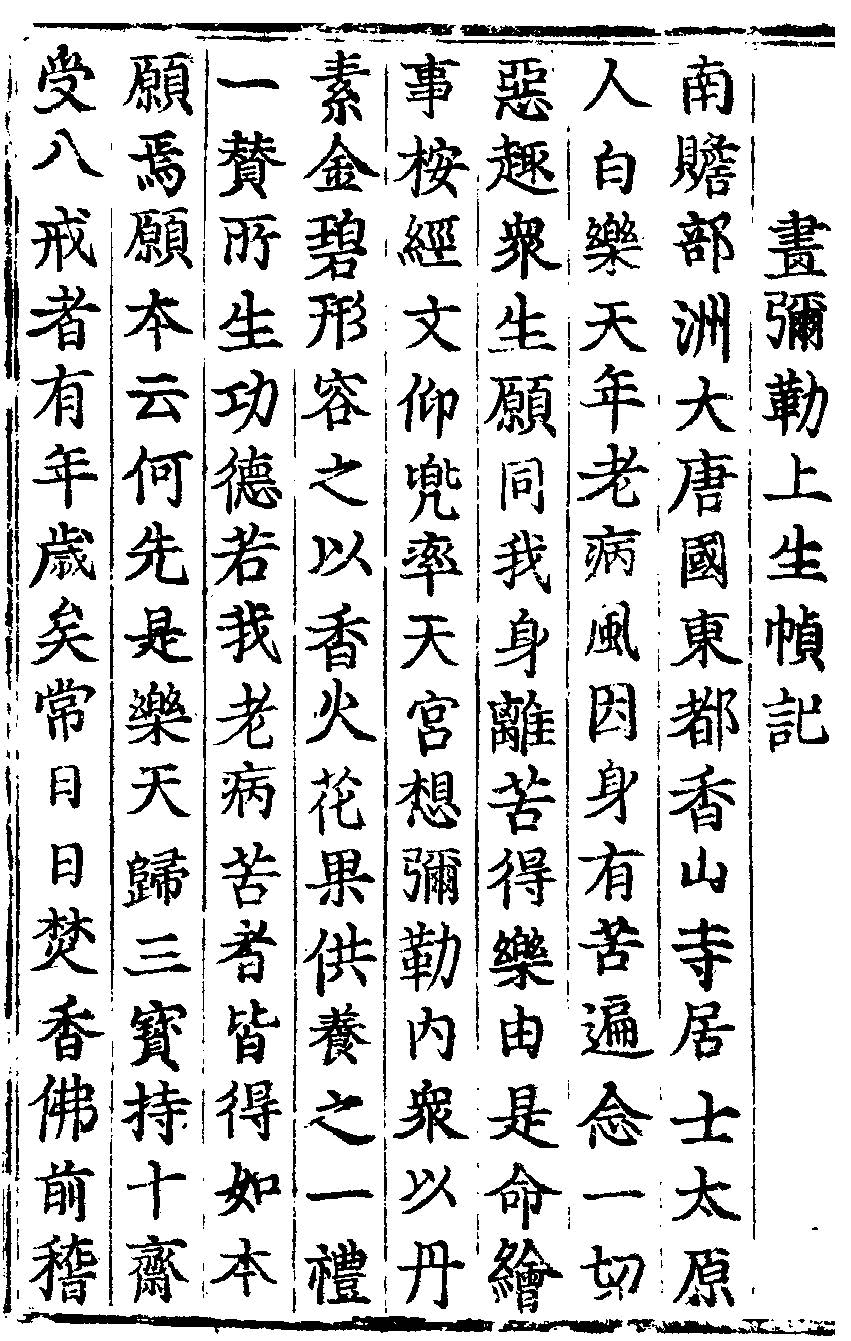 畫彌勒上生幀記
南贍部洲大唐國東都香山寺居士太原
人白樂天年老病風因身有苦遍念一切
惡趣衆生願同我身離苦得樂由是命繪
事按經文仰兜率天宮想彌勒内衆以丹
素金碧形容之以香火花果供養之一禮
一賛所生功德若我老病苦者皆得如本
願焉願本云何先是樂天歸三寶持十齋
受八戒者有年歲矣常日日焚香佛前稽